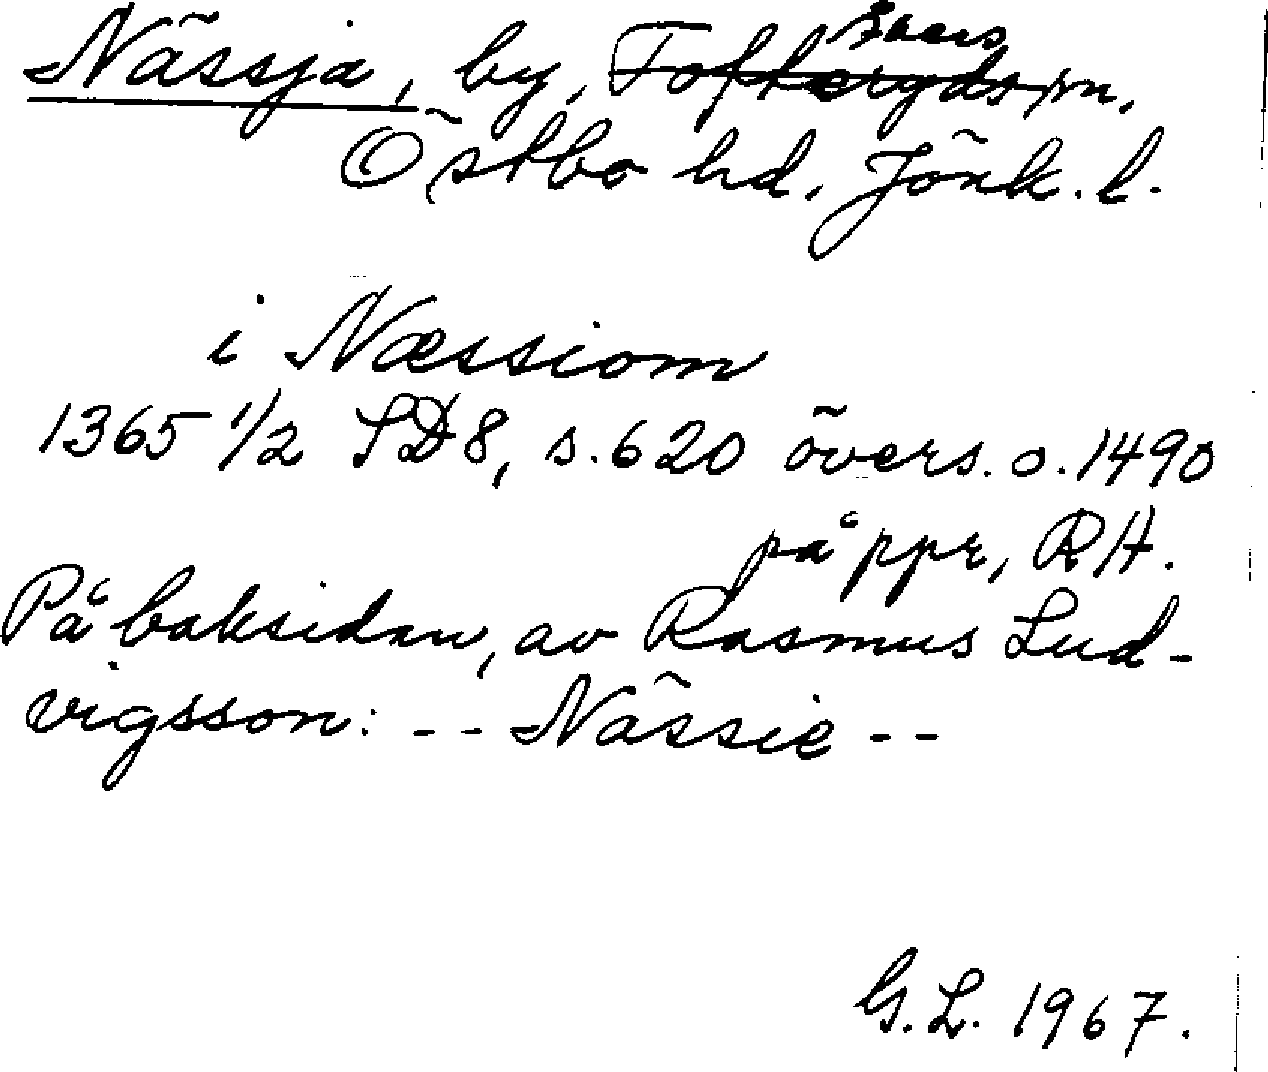 Nässja, by, Tofteryds Åkers sn.
Östbo hd. Jönk. l.
i Næssiom
1365 1/2 SD8, s. 620 övers. o. 1490
på ppr, RA.
På baksidan, av Rasmus Lud-
vigsson: -- Nässie --
G. L. 1967.